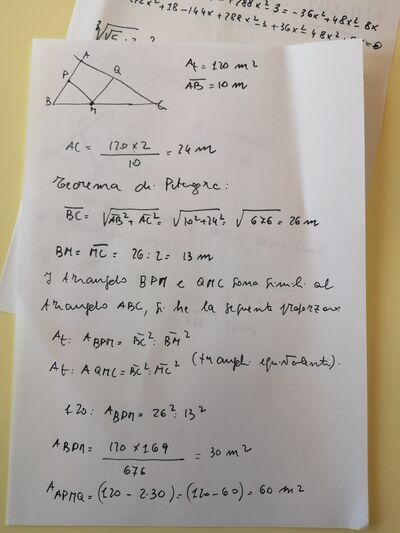 + 288x² - 3 = - 36x² + 48x² - 8x
+ 18 - 144x + 288x² - 3 + 36x² - 48x² + 8x = 0
A
P
Q
B
M
C
At = 120 m²
AB = 10 m
AC = 120 x 2 / 10 = 24 m
Teorema di Pitagora:
BC = √AB² + AC² = √10² + 24² = √676 = 26 m
BM = MC = 26 : 2 = 13 m
I triangolo BPM e QMC sono simili al
triangolo ABC, si ha la seguente proporzione
At : A BPM = BC² : BM²
At : A QMC = BC² : MC² (triangoli equivalenti).
120 : A BPM = 26² : 13²
A BPM = 120 x 169 / 676 = 30 m²
A APMQ = (120 - 2·30) = (120 - 60) = 60 m²